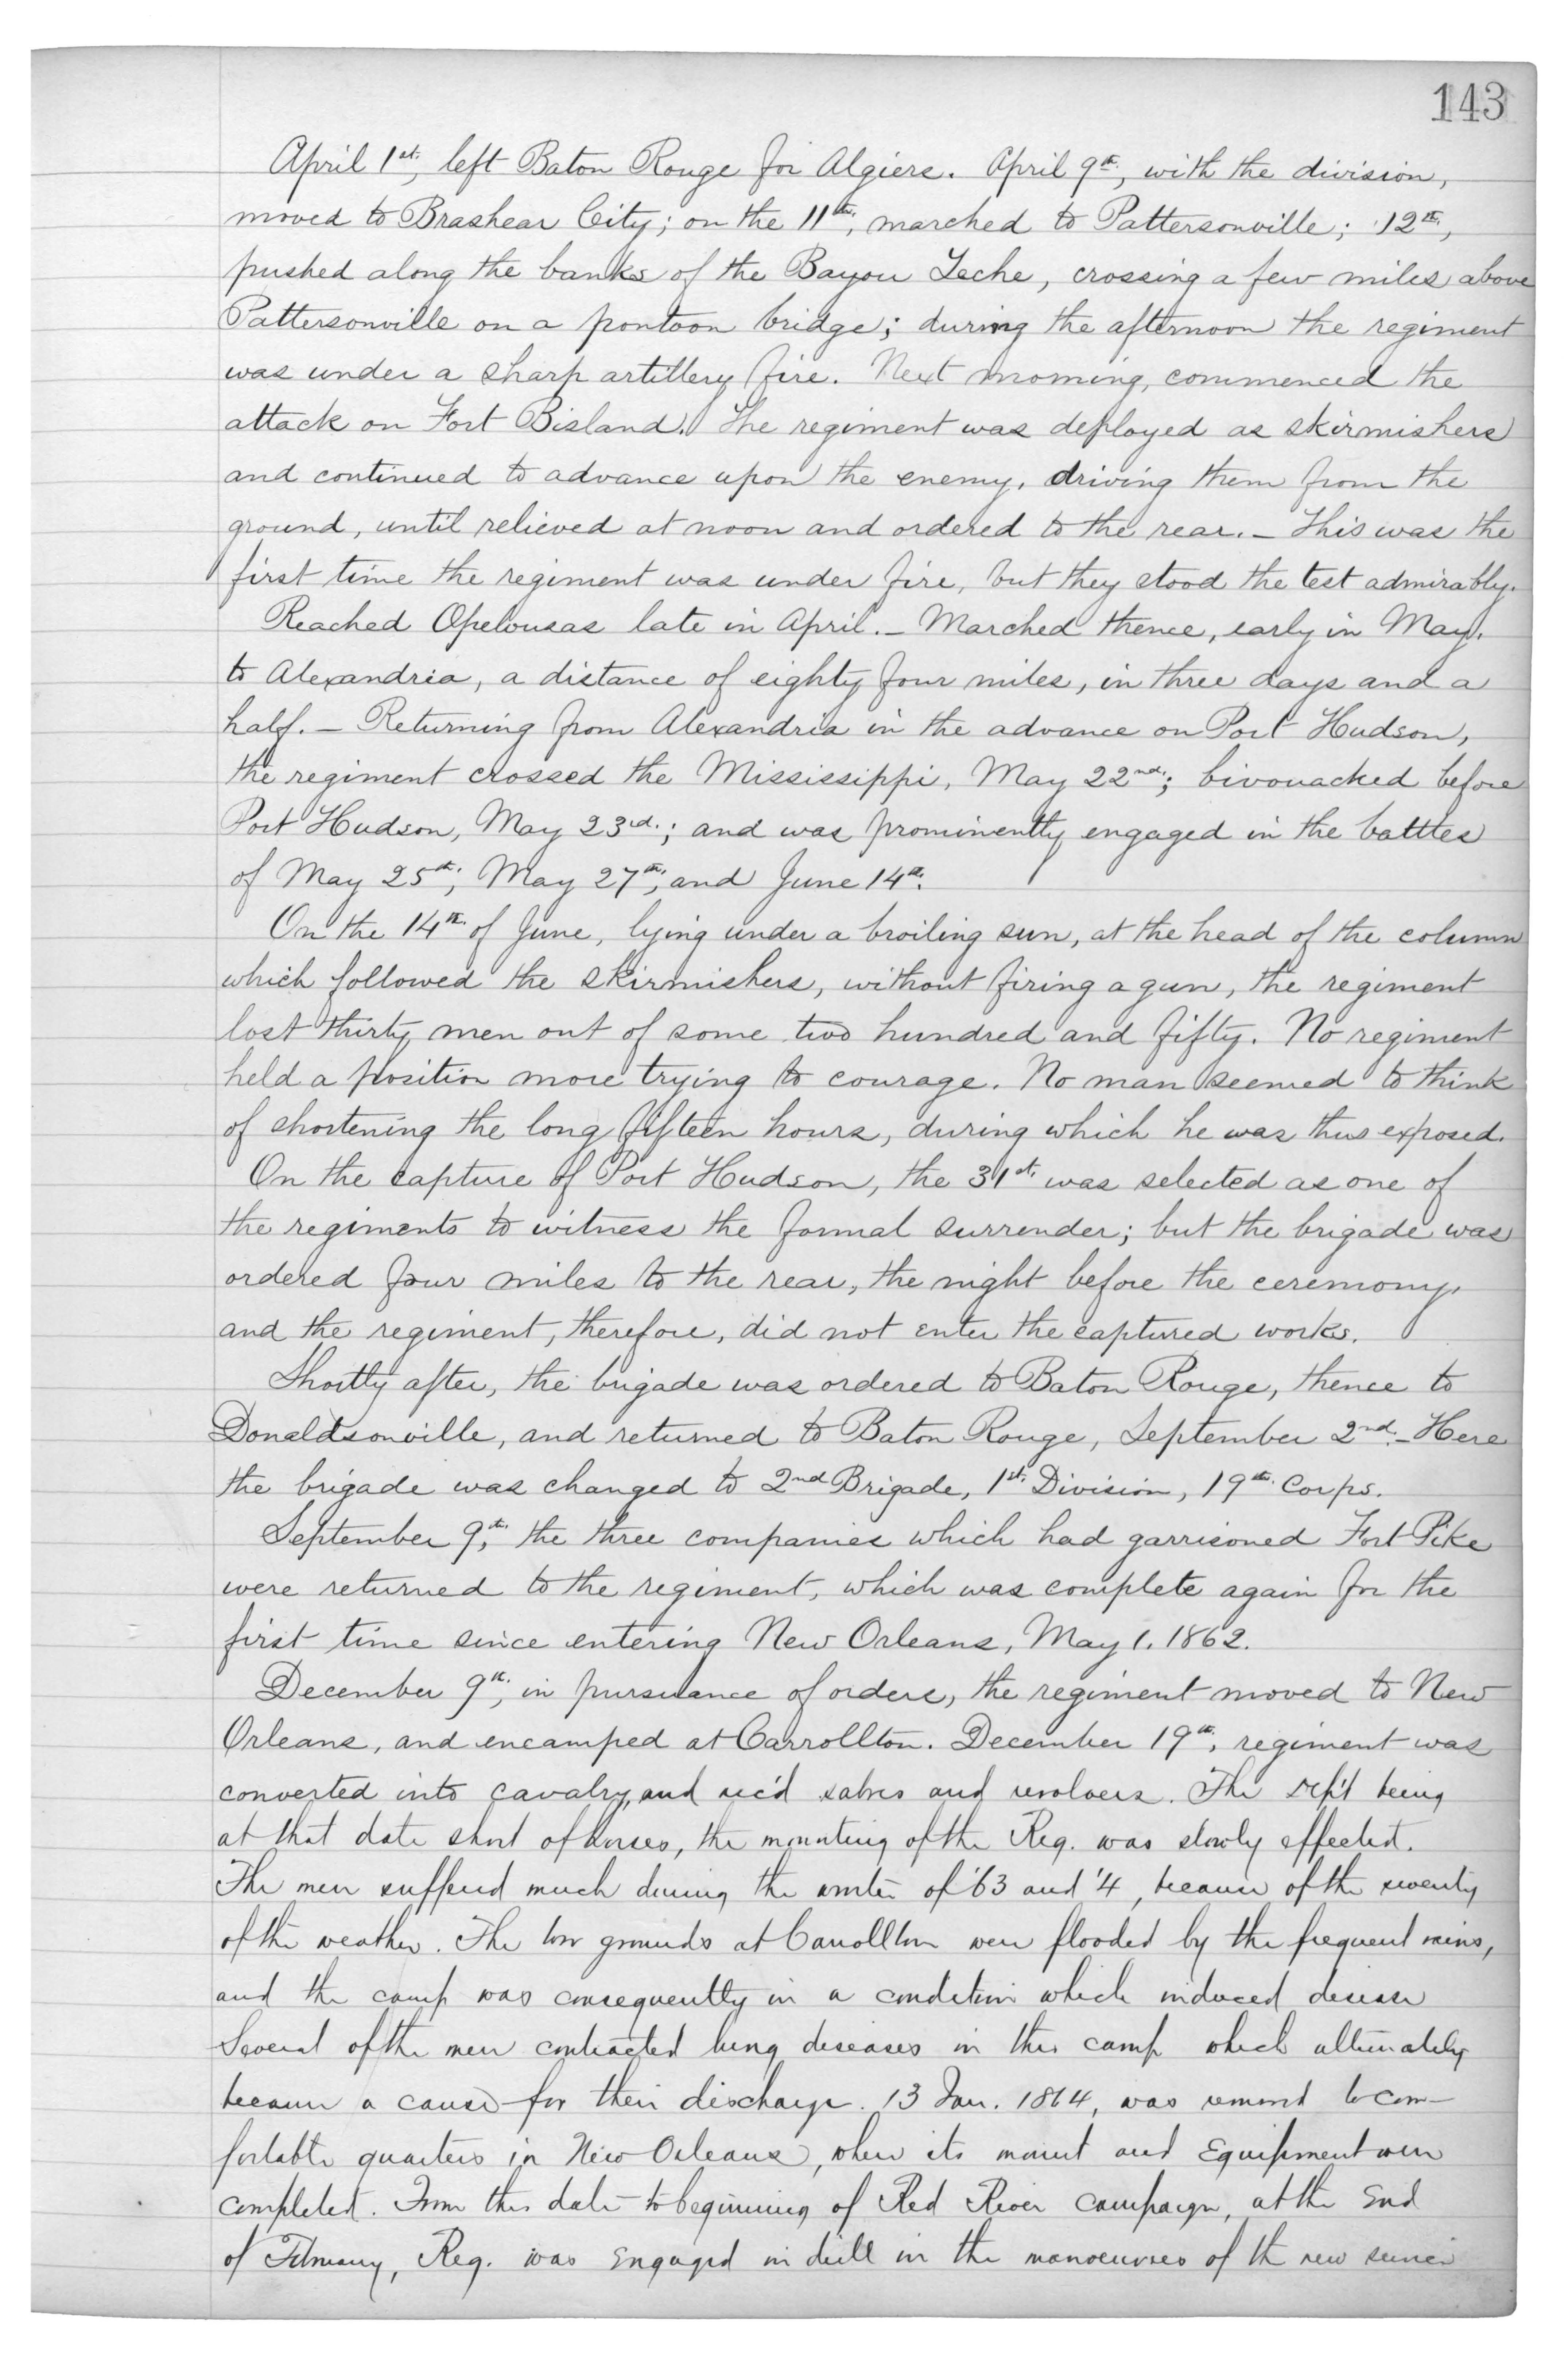 143
April 1st, left Baton Rouge for Algiers. April 9th, with the division,
moved to Brashear City; on the 11th, marched to Pattersonville; 12th,
pushed along the banks of the Bayou Teche, crossing a few miles above
Pattersonville on a pontoon bridge; during the afternoon the regiment
was under a sharp artillery fire. Next morning, commenced the
attack on Fort Bisland. The regiment was deployed as skirmishers
and continued to advance upon the enemy, driving them from the
ground, until relieved at noon and ordered to the rear. — This was the
first time the regiment was under fire, but they stood the test admirably.
Reached Opelousas late in April. — Marched thence, early in May,
to Alexandria, a distance of eighty four miles, in three days and a
half. — Returning from Alexandria in the advance on Port Hudson,
the regiment crossed the Mississippi, May 22nd; bivouacked before
Port Hudson, May 23rd.; and was prominently engaged in the battles
of May 25th, May 27th, and June 14th.
On the 14th of June, lying under a broiling sun, at the head of the column
which followed the skirmishers, without firing a gun, the regiment
lost thirty men out of some two hundred and fifty. No regiment
held a position more trying to courage. No man seemed to think
of shortening the long fifteen hours, during which he was thus exposed.
On the capture of Port Hudson, the 31st was selected as one of
the regiments to witness the formal surrender; but the brigade was
ordered four miles to the rear, the night before the ceremony,
and the regiment, therefore, did not enter the captured works.
Shortly after, the brigade was ordered to Baton Rouge, thence to
Donaldsonville, and returned to Baton Rouge, September 2nd. — Here
the brigade was changed to 2nd Brigade, 1st Division, 19th Corps.
September 9th, the three companies which had garrisoned Fort Pike
were returned to the regiment, which was complete again for the
first time since entering New Orleans, May 1, 1862.
December 9th, in pursuance of orders, the regiment moved to New
Orleans, and encamped at Carrollton. December 19th, regiment was
converted into cavalry, and rec'd sabres and revolvers. The Dep't being
at that date short of horses, the mounting of the Reg. was slowly effected.
The men suffered much during the winter of '63 and '4, because of the severity
of the weather. The low grounds at Carrollton were flooded by the frequent rains,
and the camp was consequently in a condition which induced disease
Several of the men contracted lung diseases in this camp which ultimately
became a cause for their discharge. 13 Jan. 1864, was removed to com-
fortable quarters in New Orleans, where its mount and Equipment were
completed. From this date to beginning of Red River Campaign, at the End
of February, Reg. was Engaged in drill in the manoeuvres of the new service